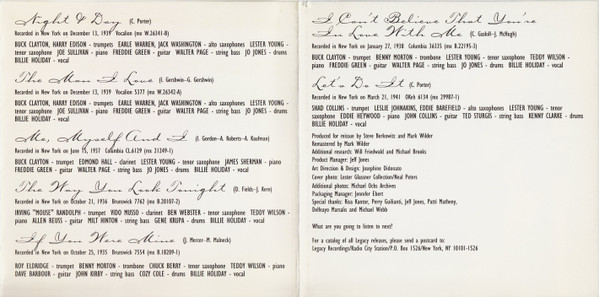 Night & Day (C. Porter)
Recorded in New York on December 13, 1939 Vocalion (mx W.26341-B)
BUCK CLAYTON, HARRY EDISON - trumpets EARLE WARREN, JACK WASHINGTON - alto saxophones LESTER YOUNG -
tenor saxophone JOE SULLIVAN - piano FREDDIE GREEN - guitar WALTER PAGE - string bass JO JONES - drums
BILLIE HOLIDAY - vocal
The Man I Love (I. Gershwin-G. Gershwin)
Recorded in New York on December 13, 1939 Vocalion 5377 (mx W.26342-A)
BUCK CLAYTON, HARRY EDISON - trumpets EARLE WARREN, JACK WASHINGTON - alto saxophones LESTER YOUNG -
tenor saxophone JOE SULLIVAN - piano FREDDIE GREEN - guitar WALTER PAGE - string bass JO JONES - drums
BILLIE HOLIDAY - vocal
Me, Myself And I (I. Gordon-A. Roberts-A. Kaufman)
Recorded in New York on June 15, 1937 Columbia CL.6129 (mx 21249-1)
BUCK CLAYTON - trumpet EDMOND HALL - clarinet LESTER YOUNG - tenor saxophone JAMES SHERMAN - piano
FREDDIE GREEN - guitar WALTER PAGE - string bass JO JONES - drums BILLIE HOLIDAY - vocal
The Way You Look Tonight (D. Fields-J. Kern)
Recorded in New York on October 21, 1936 Brunswick 7762 (mx B.20107-2)
IRVING "MOUSE" RANDOLPH - trumpet VIDO MUSSO - clarinet BEN WEBSTER - tenor saxophone TEDDY WILSON -
piano ALLEN REUSS - guitar MILT HINTON - string bass GENE KRUPA - drums BILLIE HOLIDAY - vocal
If You Were Mine (J. Mercer-M. Malneck)
Recorded in New York on October 25, 1935 Brunswick 7554 (mx B.18209-1)
ROY ELDRIDGE - trumpet BENNY MORTON - trombone CHUCK BERRY - tenor saxophone TEDDY WILSON - piano
DAVE BARBOUR - guitar JOHN KIRBY - string bass COZY COLE - drums BILLIE HOLIDAY - vocal
I Can't Believe That You're
In Love With Me (C. Gaskill-J. McHugh)
Recorded in New York on January 27, 1938 Columbia 36335 (mx B.22195-3)
BUCK CLAYTON - trumpet BENNY MORTON - trombone LESTER YOUNG - tenor saxophone TEDDY WILSON -
piano FREDDIE GREEN - guitar WALTER PAGE - string bass JO JONES - drums BILLIE HOLIDAY - vocal
Let's Do It (C. Porter)
Recorded in New York on March 21, 1941 OKeh 6134 (mx 29987-1)
SHAD COLLINS - trumpet LESLIE JOHNAKINS, EDDIE BAREFIELD - alto saxophones LESTER YOUNG - tenor
saxophone EDDIE HEYWOOD - piano JOHN COLLINS - guitar TED STURGIS - string bass KENNY CLARKE - drums
BILLIE HOLIDAY - vocal
Produced for reissue by Steve Berkowitz and Mark Wilder
Remastered by Mark Wilder
Additional research: Will Friedwald and Michael Brooks
Product Manager: Jeff Jones
Art Direction & Design: Josephine Didonato
Cover photo: Lester Glassner Collection/Neal Peters
Additional photos: Michael Ochs Archives
Packaging Manager: Jennifer Ebert
Special thanks: Risa Kantor, Perry Guiliarti, Jeff Jones, Patti Matheny,
Delfeayo Marsalis and Michael Webb
What are you going to listen to next?
For a catalog of all Legacy releases, please send a postcard to:
Legacy Recordings/Radio City Station/P.O. Box 1526/New York, NY 10101-1526